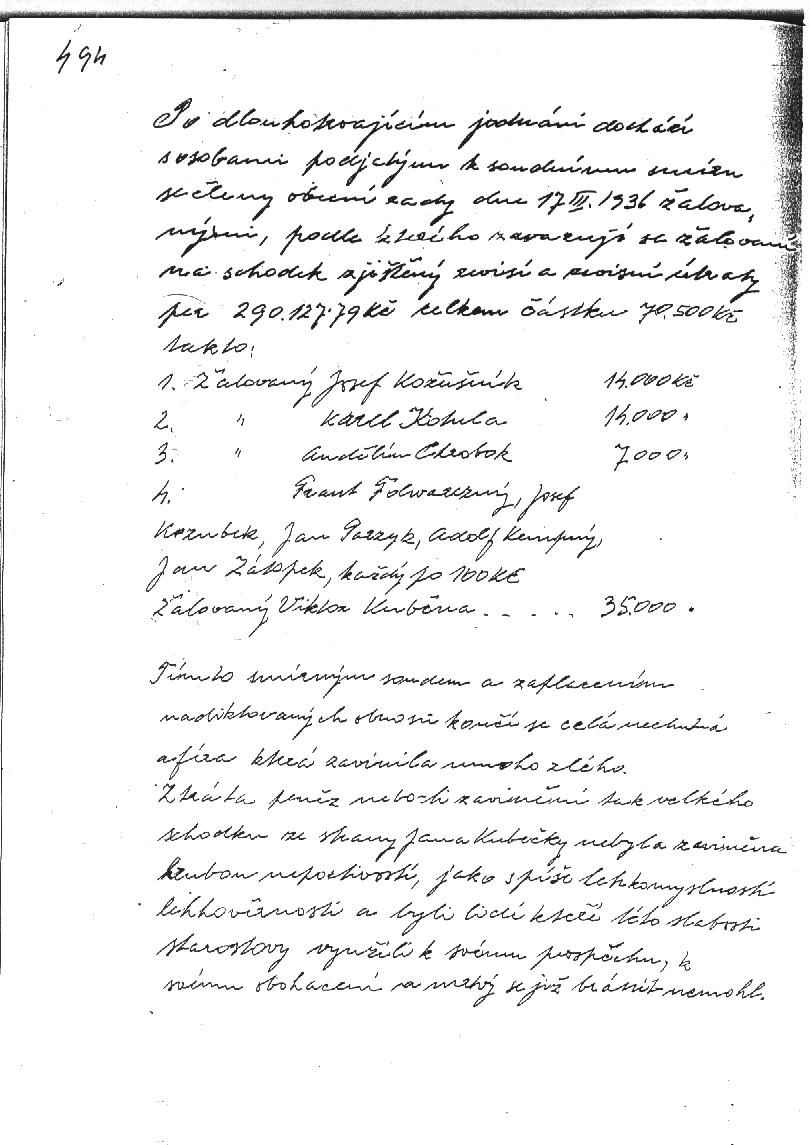 494
Po dlouhotrvajícím jednání dochází
s osobami podjetým k soudnímu smíru
se členy obecní rady dne 17 III. 1936 žalova,
nými, podle kterého zavazují se žalovaní
na schodek zjištěný revisí a revisní útraty
per 290.127.79 Kč celkem částku 70.500 Kč
takto:
1. Žalovaný Josef Kožušník 14.000 Kč
2. " Karel Kohula 14.000 "
3. " Andělín Chrobok 7000 "
4. Frant Folwarczný, Josef
Kozubek, Jan Parzyk, Adolf Kempný,
Jan Zátopek, každý po 100 Kč
Žalovaný Viktor Kuběna . . . . . 35.000 "
Tímto smírným soudem a zaplacením
nadiktovaných obnosů končí se celá nechutná
aféra která zavinila mnoho zlého.
Ztráta peněz neboli zavinění tak velkého
schodku ze strany Jana Kubečky nebyla zaviněna
hrubou nepoctivostí, jako spíše lehkomyslností
lehkověrností a byli lidé kteří této slabosti
starostovy využili k svému prospěchu, k
svému obohacení a mrtvý se již bránit nemohl.